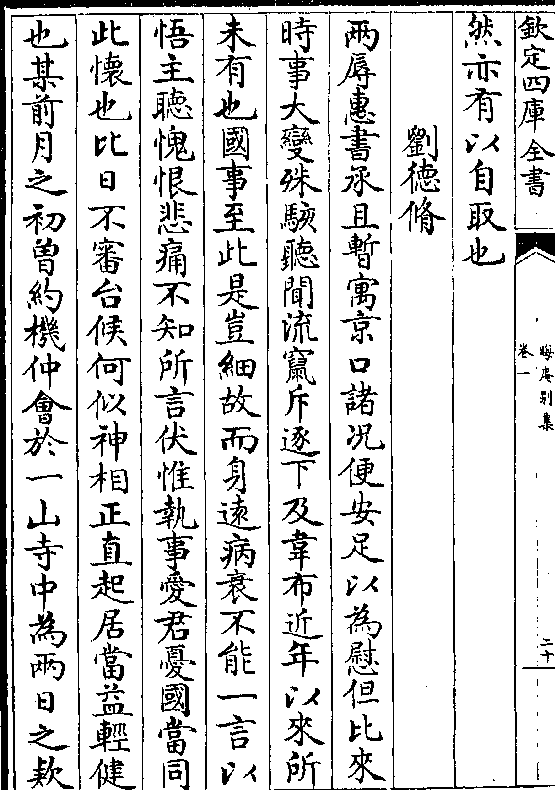 欽定四庫全書
晦庵别集
卷一
二十
然亦有以自取也
劉德脩
兩辱惠書承且暫寓京口諸况便安足以為慰但比來
時事大變殊駭聽聞流竄斥逐下及韋布近年以來所
未有也國事至此是豈細故而身逺病衰不能一言以
悟主聽愧恨悲痛不知所言伏惟執事愛君憂國當同
此懷也比日不審台候何似神相正直起居當益輕健
也某前月之初曽約機仲㑹於一山寺中為兩日之欵